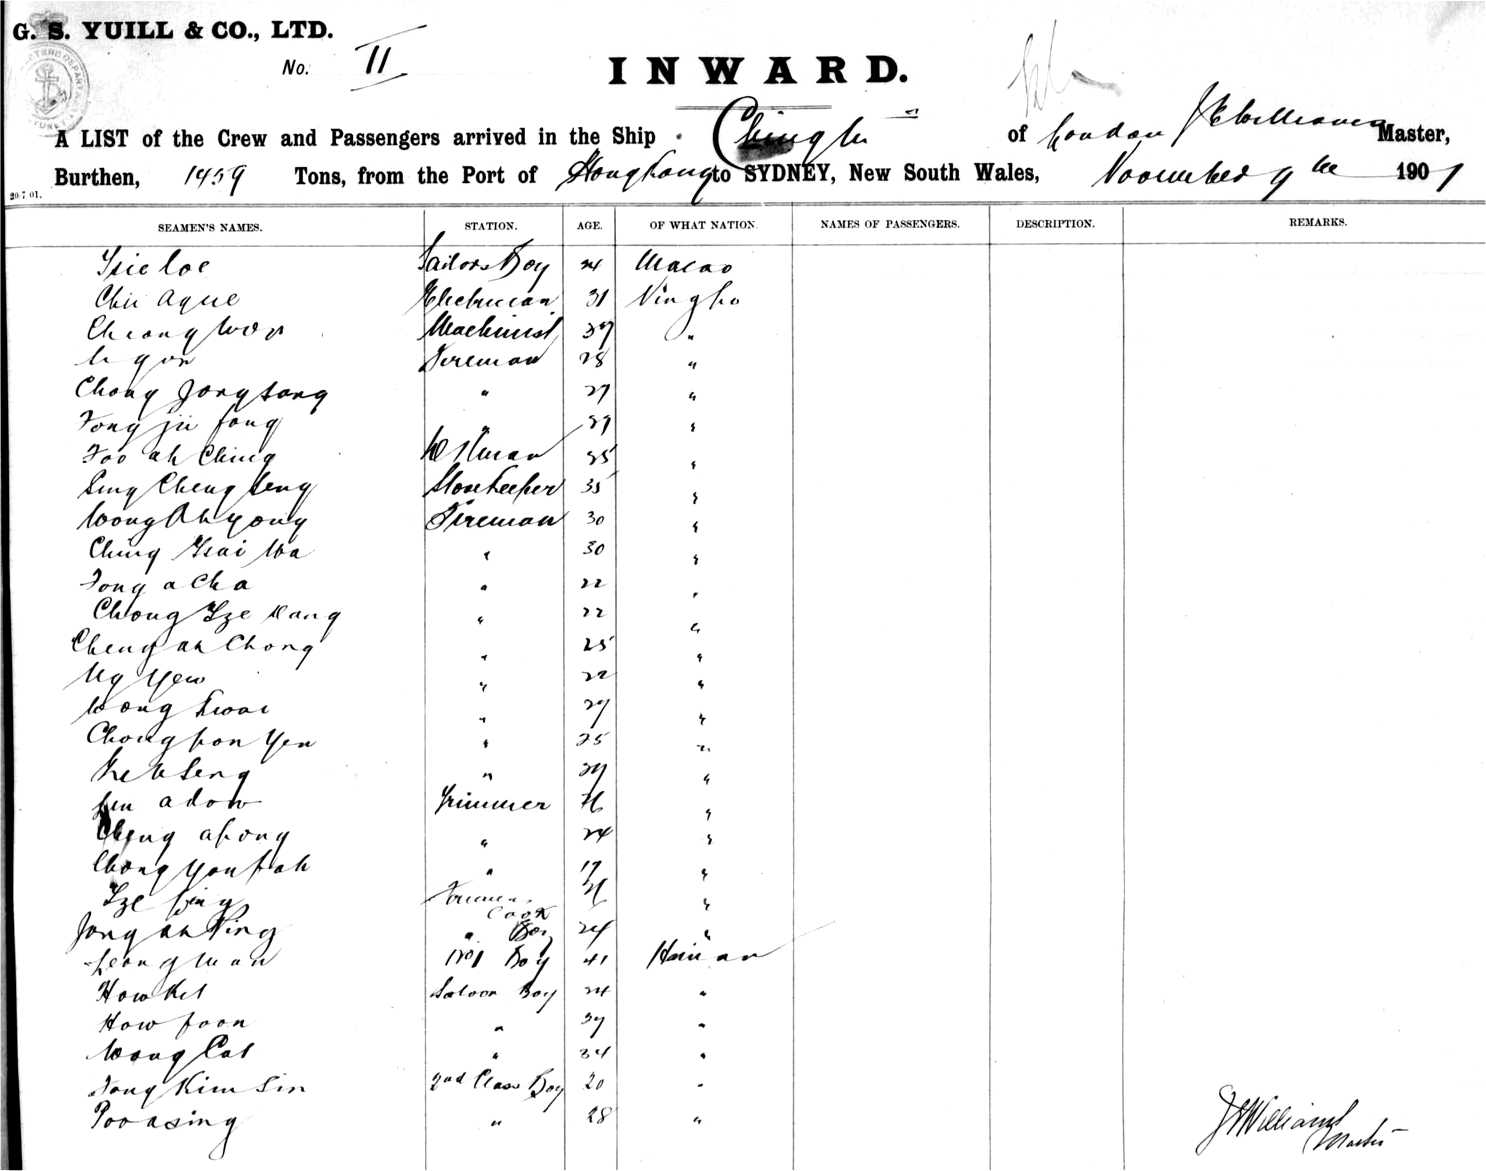 G. S. YUILL & CO., LTD.
No. II
INWARD.
A LIST of the Crew and Passengers arrived in the Ship Chingtu of London Master,
Burthen, 1459 Tons, from the Port of Hong Kong to SYDNEY, New South Wales, November 9th 1901
20.7.01.
SEAMEN'S NAMES. STATION. AGE. OF WHAT NATION. NAMES OF PASSENGERS. DESCRIPTION. REMARKS.
Sailors Boy 24 Macao
Chu Aque 31 Ningpo
Cheong Machinist 37 "
Fireman 28 "
Chong Jong Sang " 27 "
Fong Jii Fong " 27 "
Foo Ah Ching 35 "
Sing Cheng Seng Storekeeper 35 "
Wong Ah Yong Fireman 30 "
Ching Tsai Wa " 30 "
Fong a Cha " 22 "
Chong Sze Kang " 22 "
Cheng ah Chong " 25 "
Ng Yew " 22 "
Wong " 27 "
Chong Pon Yen " 25 "
Seng " 27 "
adow Trimmer "
Cheng apong " 24 "
Chong You Pah " 17 "
Sze Firemens Cook "
Jong ah Ping " Boy 24 "
Leong Man No 1 Boy 41 Hainan
How Kit Saloon Boy 24 "
How Foon " 37 "
Wong " 34 "
Fong Kim Sin 2nd Class Boy 20 "
Poo asing " 28 "
Williams
Master